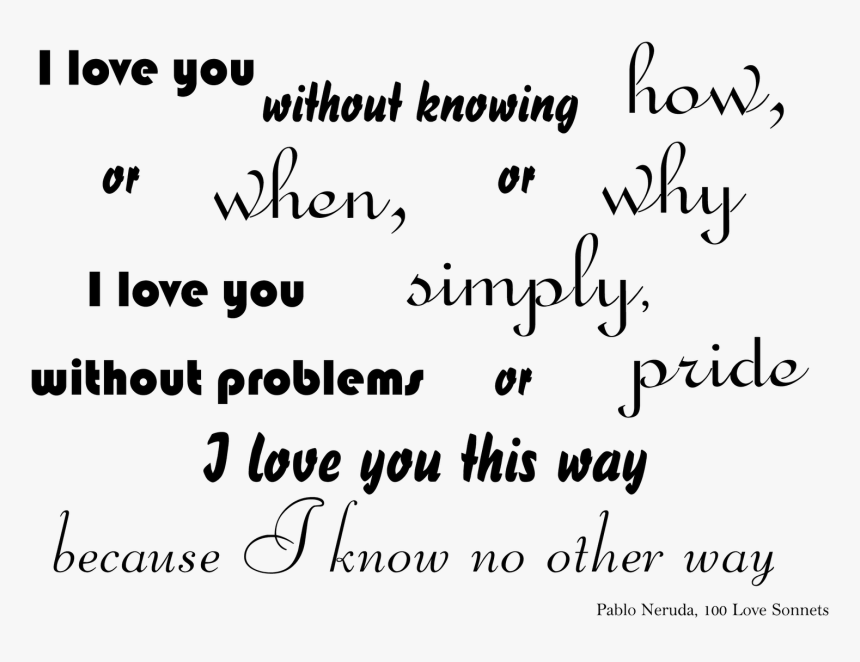 I love you without knowing how,
or when, or why
I love you simply,
without problems or pride
I love you this way
because I know no other way
Pablo Neruda, 100 Love Sonnets